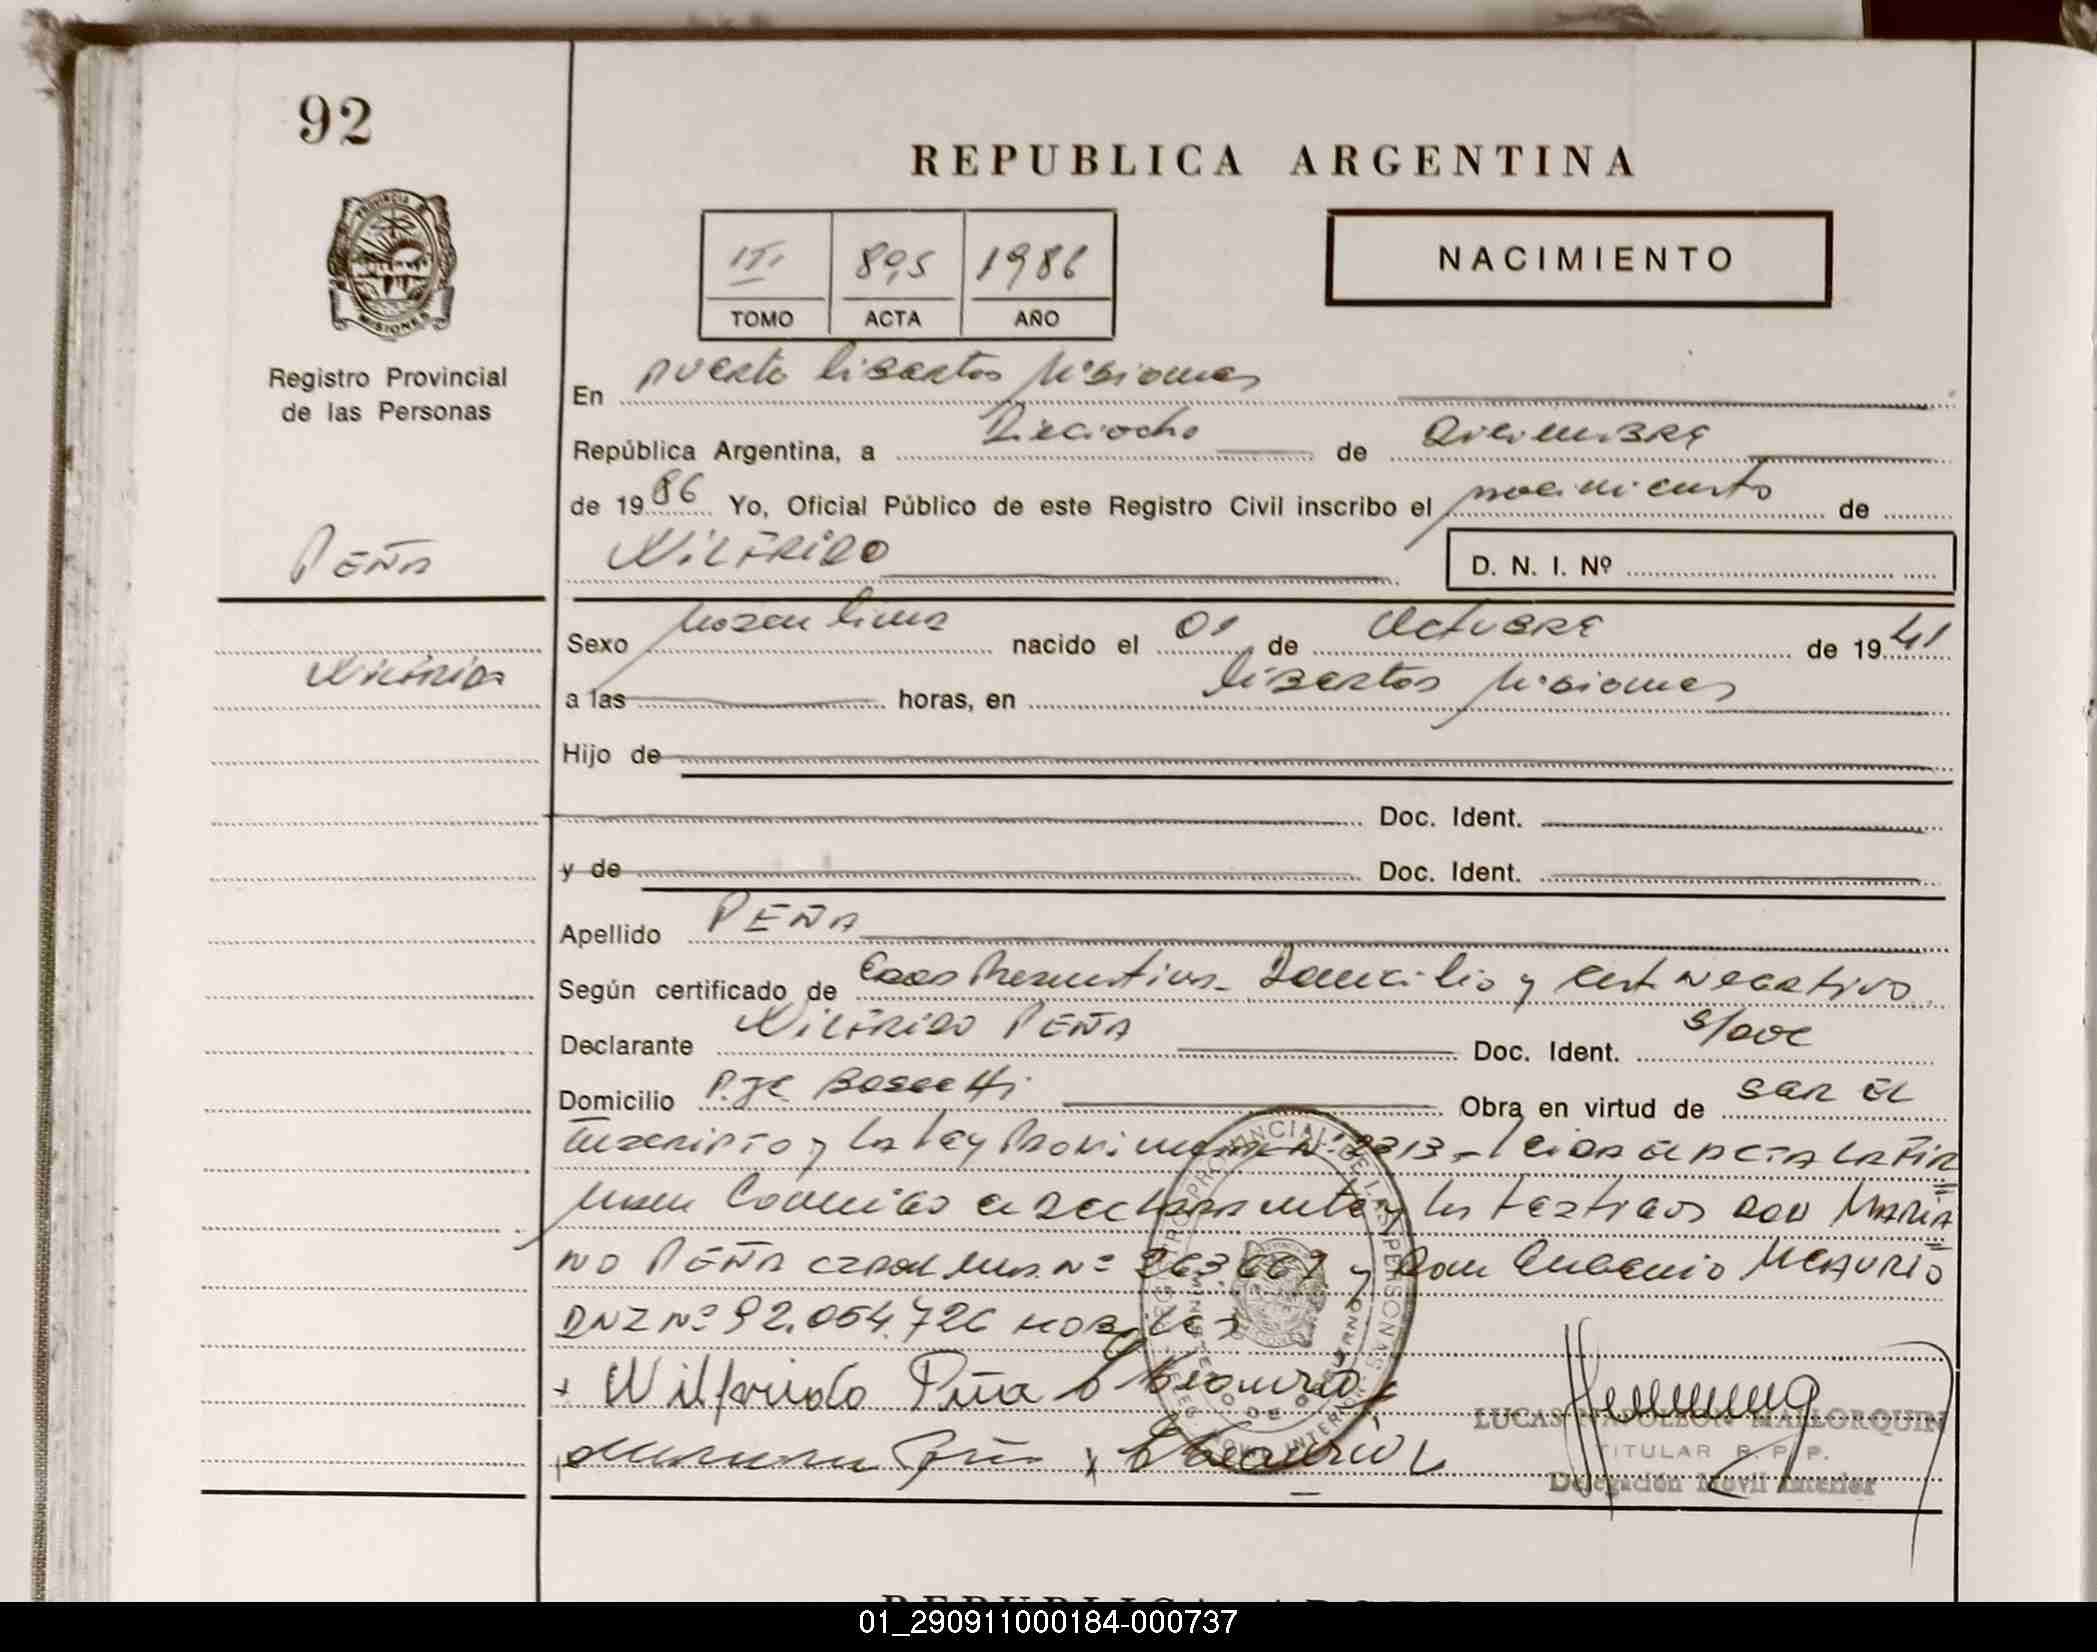 92
REPUBLICA ARGENTINA
PROVINCIA DE
MISIONES
Registro Provincial
de las Personas
III 895 1986
TOMO ACTA AÑO
NACIMIENTO
En Puerto Libertad Misiones
República Argentina, a Dieciocho de Diciembre
de 1986 Yo, Oficial Público de este Registro Civil inscribo el nacimiento de
PEÑA
WILFRIDO
D. N. I. Nº
Sexo Masculino nacido el 01 de Octubre de 1941
Wilfrido
a las horas, en Libertad Misiones
Hijo de
Doc. Ident.
y de Doc. Ident.
Apellido PEÑA
Según certificado de Edad Domicilio y cert Negativo
Declarante WILFRIDO PEÑA Doc. Ident. S/DOC
Domicilio Pje Bossetti Obra en virtud de SER EL
Inscripto y la Ley Provincial Nº 2313 - Leida el ACTA LA FIR
man Conmigo el Declarante y los testigos DON MARIA
NO PEÑA Nº 263667 y Don Eugenio MEAURIO
DNI Nº 92.054.726 HABILES
+ Wilfrido Peña
LUCAS NAPOLEON MALLORQUIN
TITULAR R.P.P.
Delegación Móvil Interior
REGISTRO PROVINCIAL DE LAS PERSONAS
MINISTERIO DE GOBIERNO
REPUBLICA ARGENTINA
01_290911000184-000737